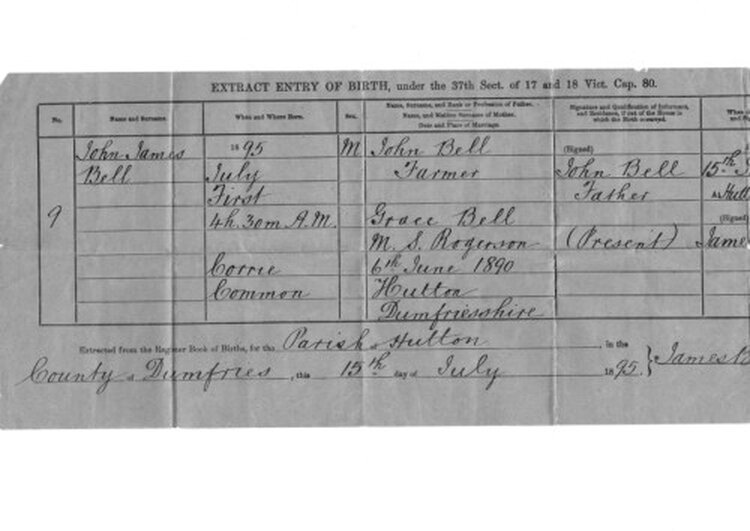 EXTRACT ENTRY OF BIRTH, under the 37th Sect. of 17 and 18 Vict. Cap. 80.
No.
Name and Surname.
When and Where Born.
Sex.
Name, Surname, and Rank or Profession of Father.
Name, and Maiden Surname of Mother.
Date and Place of Marriage.
Signature and Qualification of Informant,
and Residence, if out of the House in
which the Birth occurred.
9
John James
Bell
1895
July
First
4h. 30m A.M.
Corrie
Common
M
John Bell
Farmer
Grace Bell
M. S. Rogerson
6th June 1890
Hutton
Dumfriesshire
(Signed)
John Bell
Father
(Present)
15th
At
(Signed)
Extracted from the Register Book of Births, for the Parish of Hutton, in the
County of Dumfries, this 15th day of July 1895.
James